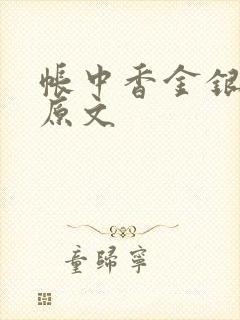 帐中香金银
原文
童归宁